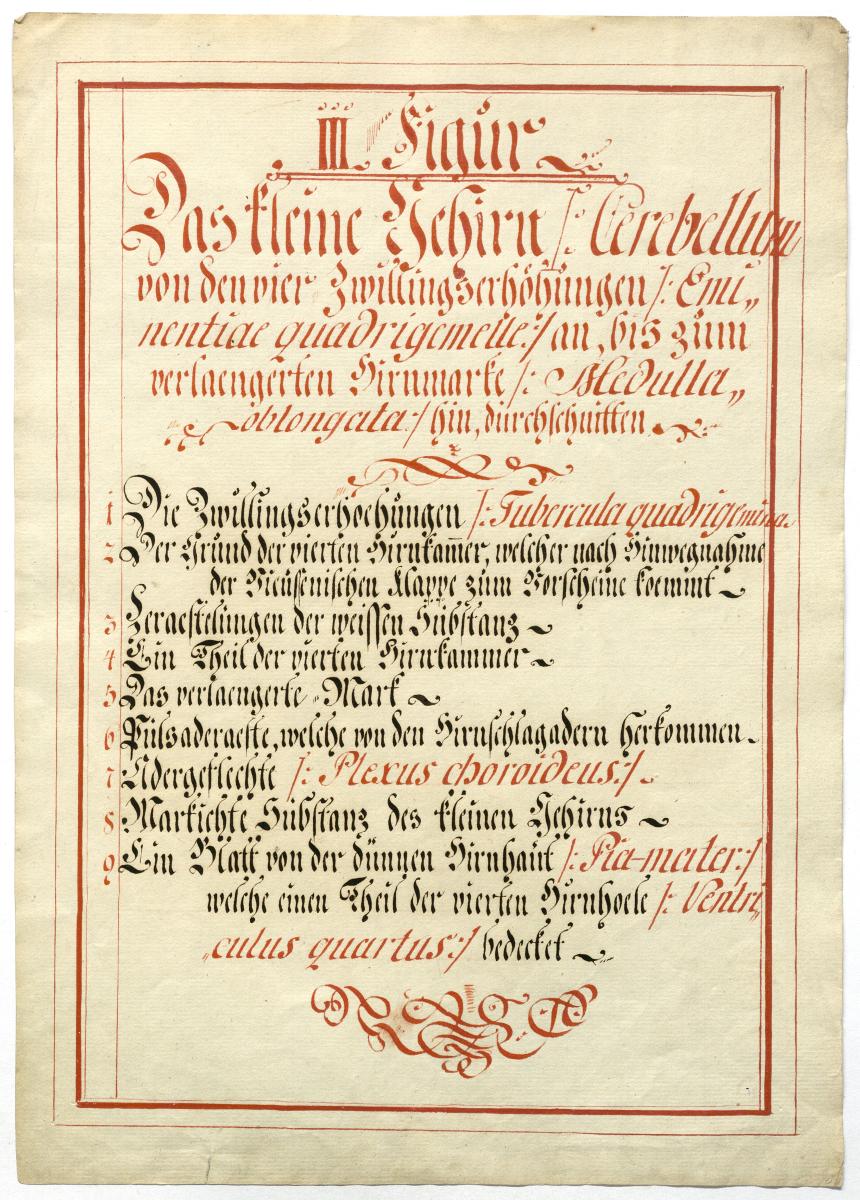 III Figur
Das kleine Gehirn /: Cerebellum
von den vier Zwillingserhöhungen /: Emi„
nentiae quadrigemeue :/ an, bis zum
verlaengerten Hirnmarke /: Medulla„
oblongata :/ hin, durchschnitten.
1 Die Zwillingserhoehungen /: Tubercula quadrigemina.
2 Der Grund der vierten Hirnkam̅er, welcher nach Hinwegnahme
der Vieusenischen Klappe zum Vorscheine koemmt
3 Zeraestelungen der weissen Substanz
4 Ein Theil der vierten Hirnkammer
5 Das verlaengerte Mark
6 Pulsaderaeste, welche von den Hirnschlagadern herkommen
7 Adergeflechte /: Plexus choroideus :/
8 Markichte Substanz des kleinen Gehirns
9 Ein Blatt von der dünnen Hirnhaut /: Pia-mater :/
welche einen Theil der vierten Hirnhoele /: Ventri„
„culus quartus :/ bedecket